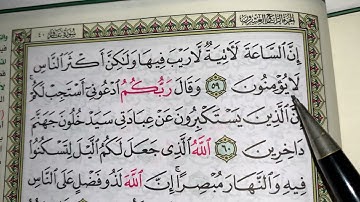 إِنَّ ٱلسَّاعَةَ لَأٓتِيَةٌ لَّا رَيْبَ فِيهَا وَلَٰكِنَّ أَكْثَرَ ٱلنَّاسِ
لَا يُؤْمِنُونَ ٥٩ وَقَالَ رَبُّكُمُ ٱدْعُونِيٓ أَسْتَجِبْ لَكُمْ
إِنَّ ٱلَّذِينَ يَسْتَكْبِرُونَ عَنْ عِبَادَتِي سَيَدْخُلُونَ جَهَنَّمَ
دَاخِرِينَ ٦٠ ٱللَّهُ ٱلَّذِي جَعَلَ لَكُمُ ٱلَّيْلَ لِتَسْكُنُوا۟
فِيهِ وَٱلنَّهَارَ مُبْصِرًا إِنَّ ٱللَّهَ لَذُو فَضْلٍ عَلَى ٱلنَّاسِ